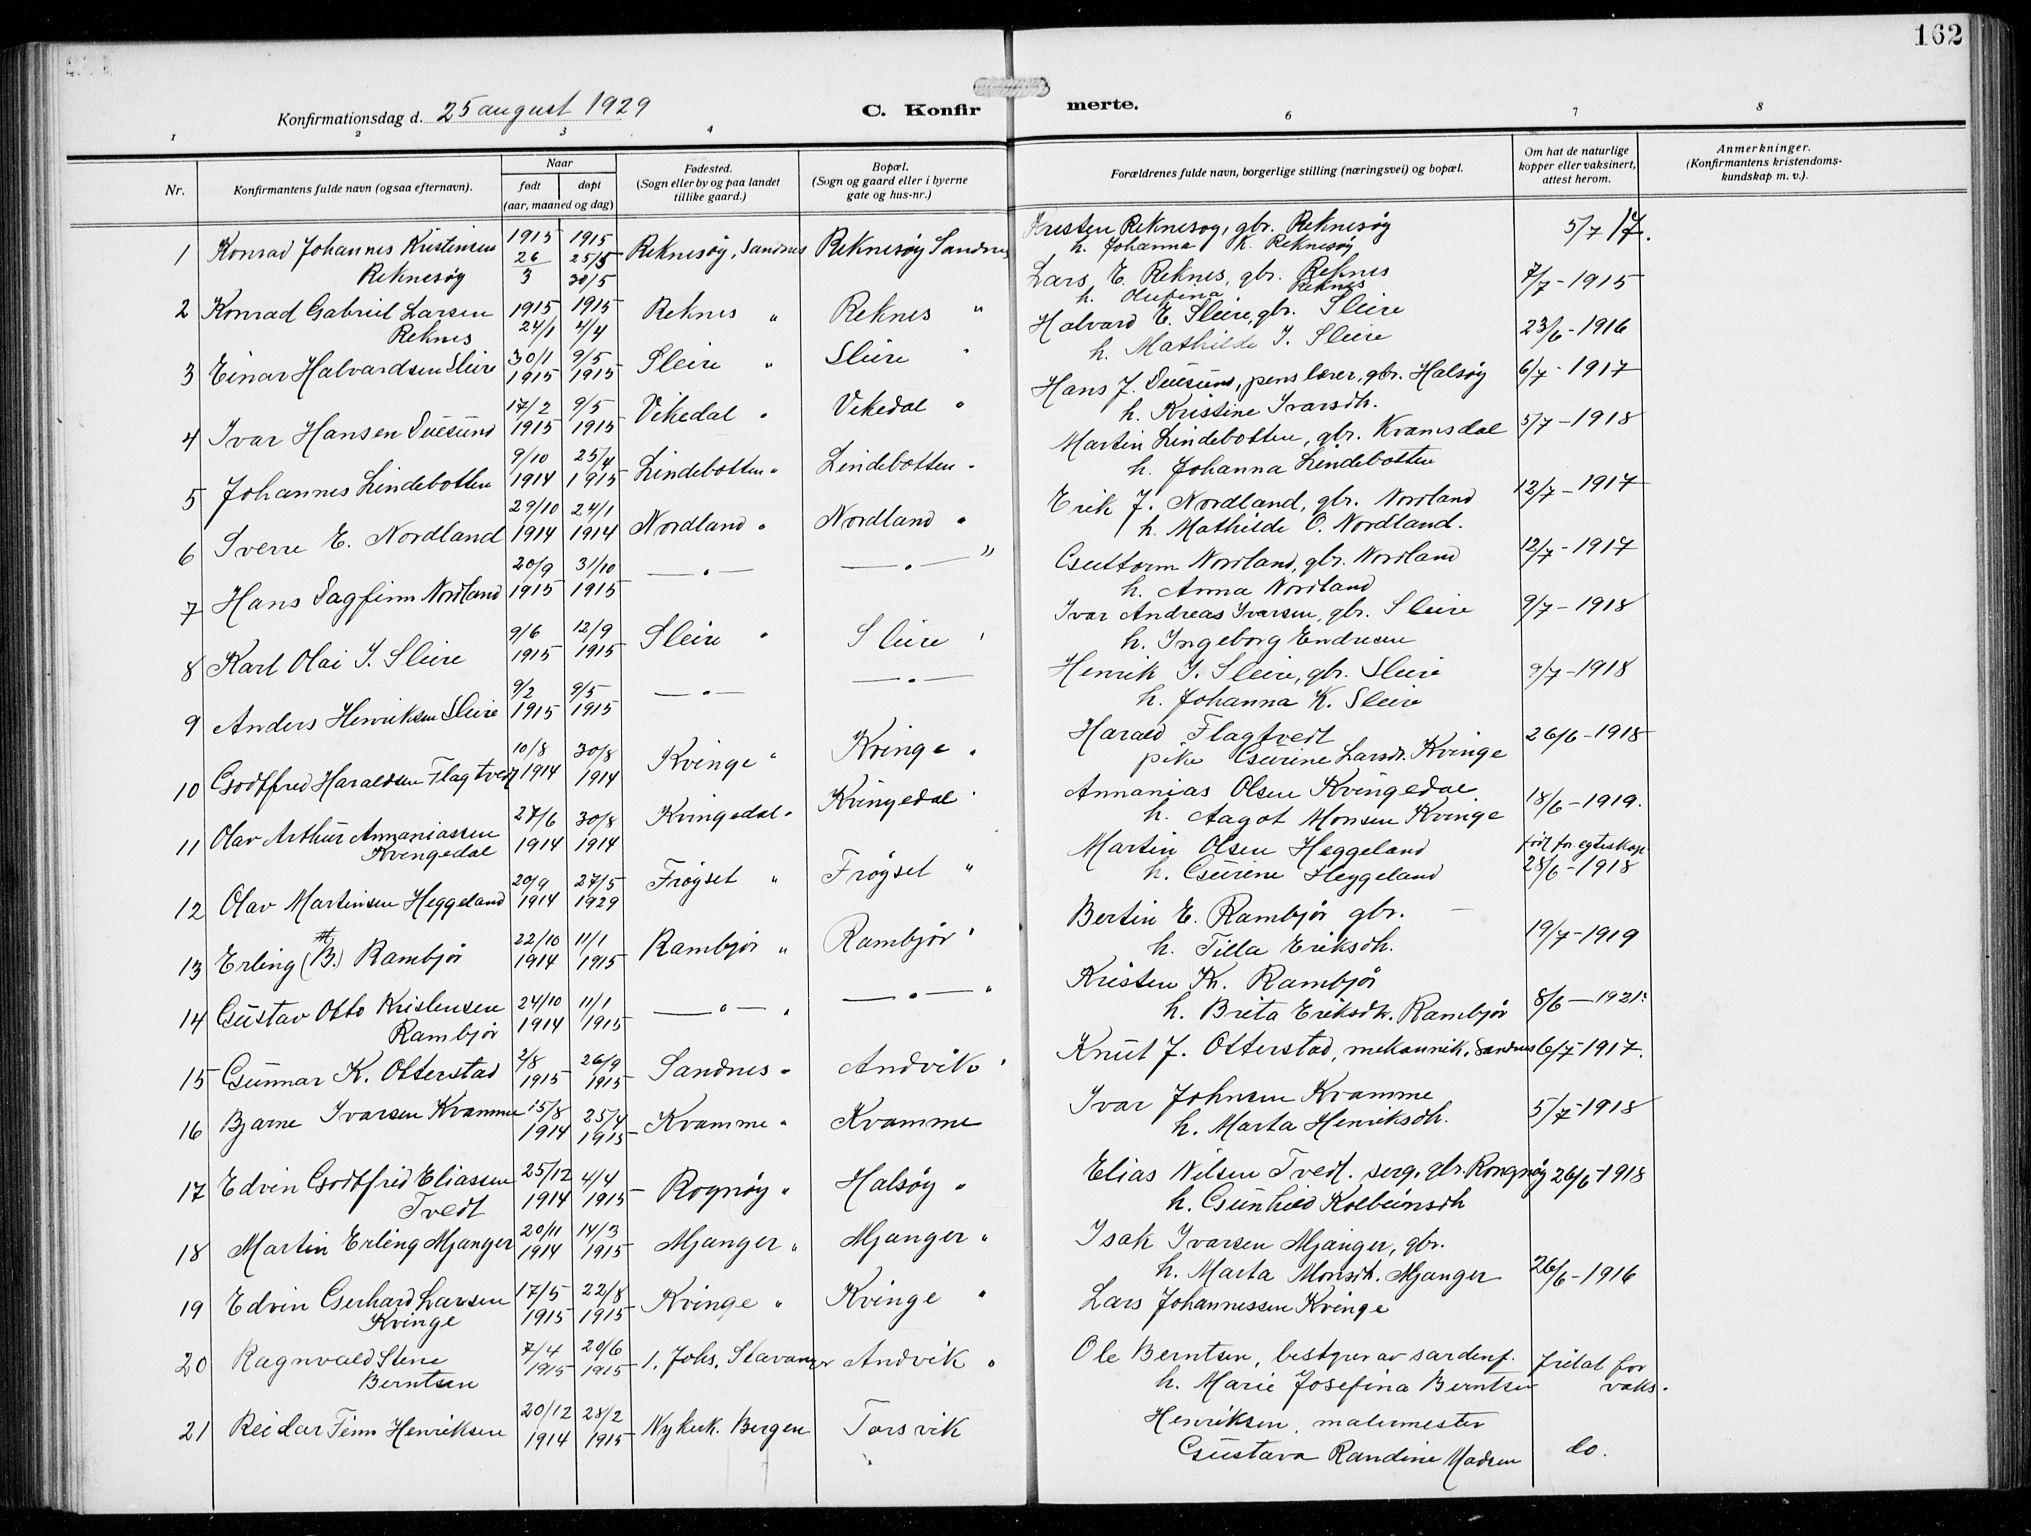 162
Konfirmationsdag d. 25 august 1929
C. Konfir merte.
1 2 3 4 6 7 8
Nr. Konfirmantens fulde navn (ogsaa efternavn). Naar født døpt (aar, maaned og dag) Fødested. (Sogn eller by og paa landet tillike gaard.) Bopæl. (Sogn og gaard eller i byerne gate og hus-nr.) Forældrenes fulde navn, borgerlige stilling (næringsvei) og bopæl. Om hat de naturlige kopper eller vaksinert, attest herom. Anmerkninger. (Konfirmantens kristendoms-kundskap m. v.).
1 Konrad Johannes Kristensen 1915 1915 Reknesøy, Sandnes Reknesøy Sandnes Kristen Reknesøy, gbr. Reknesøy 5/7 17.
Reknesøy 26/3 25/5 30/5 h. Johanna K. Reknesøy
2 Konrad Gabriel Larsen 1915 1915 Reknes " Reknes " Lars E. Reknes, gbr. Reknes 7/7-1915
Reknes 24/1 4/4 h. Olufina Reknes
3 Einar Halvardsen Sleire 30/1 1915 9/5 1915 Sleire " Sleire " Halvard E. Sleire, gbr. Sleire 23/6-1916
h. Mathilde I. Sleire
4 Ivar Hansen Duesund 17/2 1915 9/5 1915 Vikedal " Vikedal " Hans J. Duesund, pens lærer, gbr. Halsøy 6/7-1917
h. Kristine Ivarsdh.
5 Johannes Lindebotten 9/10 1914 25/4 1915 Lindebotten " Lindebotten " Martin Lindebotten, gbr. Kvamsdal 5/7-1918
h. Johanna Lindebotten
6 Sverre E. Nordland 29/10 1914 24/1 1914 Nordland " Nordland " Erik J. Nordland, gbr. Nordland 12/7-1917
h. Mathilde O. Nordland.
7 Hans Dagfinn Nordland 20/9 1915 31/10 1915 — " — — " — " Guttorm Nordland, gbr. Nordland 12/7-1917
h. Anna Nordland
8 Karl Olai I. Sleire 9/6 1915 12/9 1915 Sleire " Sleire " Ivar Andreas Ivarsen, gbr. Sleire 9/7-1918
h. Ingeborg Endresen
9 Anders Henriksen Sleire 9/2 1915 9/5 1915 — " — — " — Henrik I. Sleire, gbr. Sleire 9/7-1918
h. Johanna K. Sleire
10 Godtfred Haraldsen Flagtvedt 10/8 1914 30/8 1914 Kvinge " Kvinge " Harald Flagtvedt 26/6-1918
pike Gurine Larsd. Kvinge
11 Olav Arthur Annaniassen 27/6 1914 30/8 1914 Kvingedal " Kvingedal " Annanias Olsen Kvingedal 18/6-1919.
Kvingedal h. Aagot Monsen Kvinge
12 Olav Martinsen Heggeland 20/9 1914 27/5 1929 Frøyset " Frøyset " Martin Olsen Heggeland født før egteskap.
h. Gurine Heggeland 28/6-1918
13 Erling (B.) Rambjør 22/10 1914 11/1 1915 Rambjør " Rambjør " Bertin E. Rambjør gbr. — 19/7-1919
h. Tilla Eriksdh.
14 Gustav Otto Kristensen 24/10 1914 11/1 1915 — " — " — " — " Kristen Kr. Rambjør
Rambjør h. Brita Eriksdh. Rambjør 8/6-1921.
15 Gunnar K. Otterstad 2/8 1915 26/9 1915 Sandnes " Andvik " Knut J. Otterstad, mekannik, Sandnes 6/7-1917.
16 Bjarne Ivarsen Kvamme 15/8 1914 25/4 1915 Kvamme " Kvamme Ivar Johnsen Kvamme 5/7-1918
h. Marta Henriksdh.
17 Edvin Godtfred Eliassen 25/12 1914 4/4 1915 Rognøy " Halsøy " Elias Nilsen Tvedt. serg. gbr. Rongnøy 26/6-1918
Tvedt h. Gunhild Kolbeinsdh
18 Martin Erling Mjanger 20/11 1914 14/3 1915 Mjanger " Mjanger " Isak Ivarsen Mjanger, gbr.
h. Marta Monsdh. Mjanger 26/6-1916
19 Edvin Gerhard Larsen 17/5 1915 22/8 1915 Kvinge " Kvinge " Lars Johannessen Kvinge
Kvinge
20 Ragnvald Stene 7/4 1915 20/6 1915 S. Johs. Stavanger Andvik " Ole Berntsen, bestyrer av sardinf. fritat for
Berntsen h. Marie Josefina Berntsen vaks.
21 Reidar Finn Henriksen 20/12 1914 28/2 1915 Nykirk. Bergen Torsvik Henriksen, malermester
Gustava Randine Madsen do.